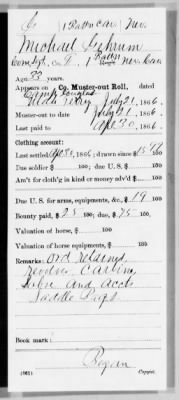 G | 1 Battn Cav. | Nev.
Michael Gehrum
Com. Sgt., Co. F, 1 Battn Reg't Nev. Cav.
Age 33 years.
Appears on Co. Muster-out Roll, dated
Camp Douglas
Utah Terry July 21, 1866.
Muster-out to date July 21, 1866.
Last paid to Apr. 30, 1866.
Clothing account:
Last settled Apr 30, 1866; drawn since $ 15 100
Due soldier $ 100; due U. S. $ 100
Am't for cloth'g in kind or money adv'd $ 100
Due U. S. for arms, equipments, &c., $ 19 100
Bounty paid $ 25 100; due, $ 75 100
Valuation of horse, $ 100
Valuation of horse equipments, $ 100
Remarks: Ord retained
revolver Carbine
Sabre and accts
Saddle Bags
Regan
(361) Copyist.